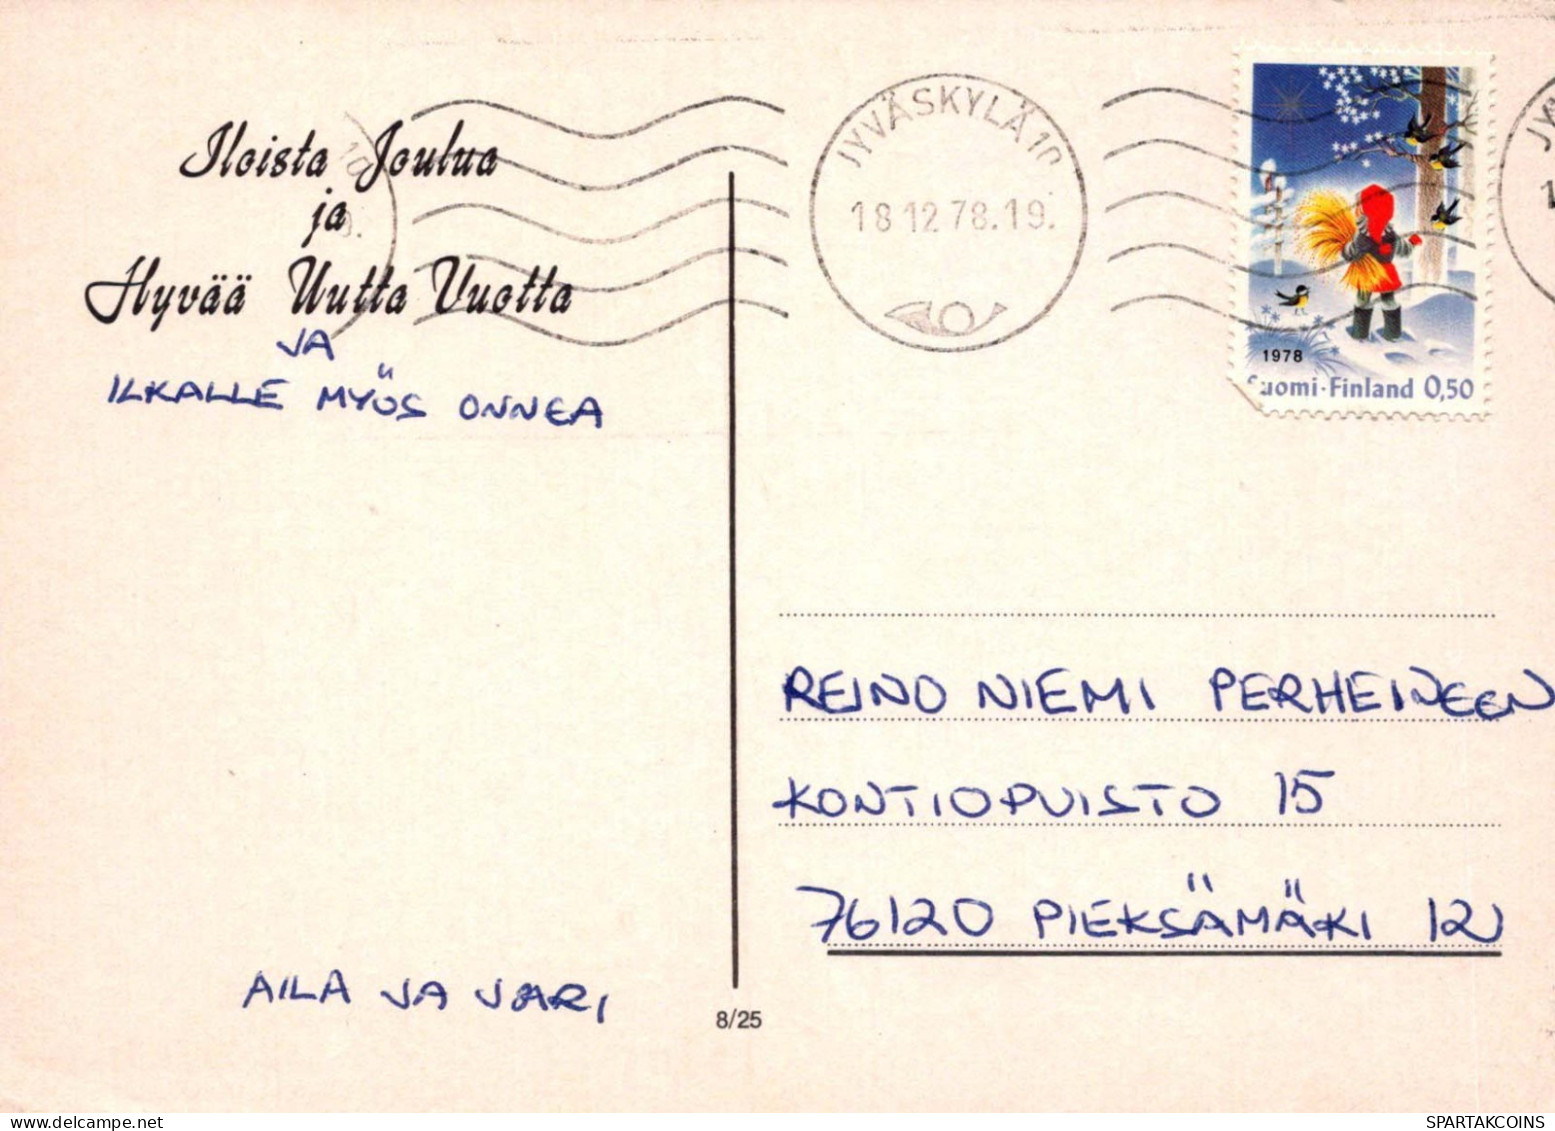 Iloista Joulua
ja
Hyvää Uutta Vuotta
JA
ILKALLE MYÖS ONNEA
AILA JA JARI
8/25
JYVÄSKYLÄ 10
18.12.78.19.
1978
Suomi·Finland 0,50
REINO NIEMI PERHEINEEN
KONTIOPUISTO 15
76120 PIEKSÄMÄKI 12
SPARTAKCOINS